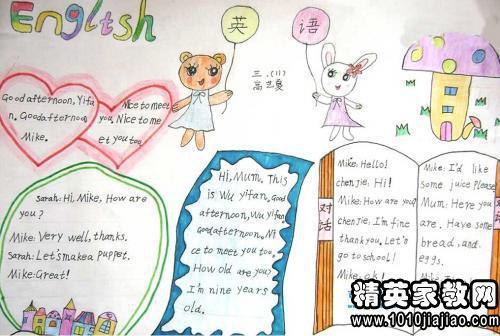 English
英 语
三.(1)
高艺夏
Good afternoon, Yifa
n. Good afternoon,
Mike.
Nice to meet
you. Nice to me
et you too.
Sarah: Hi, Mike. How are
you?
Mike: Very well, thanks.
Sarah: Let's make a puppet.
Mike: Great!
Hi, Mum. This
is Wu Yifan. Good
afternoon, Wu Yifan.
Good afternoon. Ni
ce to meet you too.
How old are you?
I'm nine years
old.
对话
Mike: Hello!
chenjie, Hi!
Mike: How are you?
chenjie, I'm fine
thank you. Let's
go to school!
Mike: ok!
Mike: I'd like
some juice please.
Mum: Here you
are. Have some
bread, and.
eggs.
对话
精英家教网
www.1010jiajiao.com